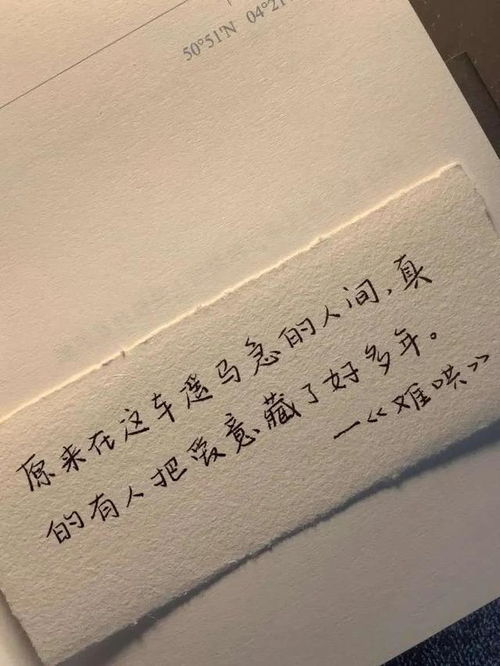 50°51'N 04°21'
原来在这车遥马急的人间，真
的有人把爱意藏了好多年。
—《难哄》